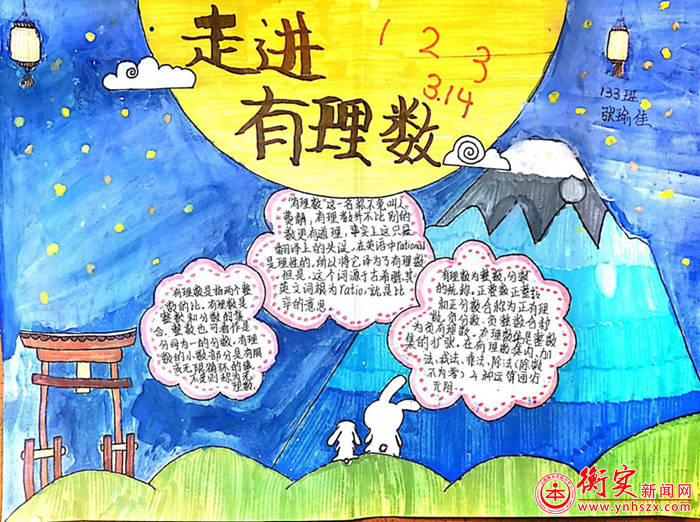 走进
有理数
1 2 3
3.14
133班
张瑜佳
"有理数"这一名称不免叫人
费解,有理数并不比别的
数更有道理,事实上这只是
翻译上的失误。在英语中rational
是理性的,所以将它译为了有理数
但是,这个词源于古希腊,其
英文词根为ratio,就是比
率的意思
有理数是指两个整
数的比,有理数是
整数和分数的集
合。整数也可看作是
分母为一的分数。有理
数的小数部分是有限
或无限循环的数。
不是则称为无
理数。
有理数为整数,分数
的统称。正整数正整数
和正分数合称为正有理
数,负分数,负整数合称
为负有理数。有理数集是整数
集的扩张。在有理数集内,加
法、减法、乘法、除法(除数
不为零)4种运算通行
无阻
衡实新闻网
www.ynhszx.com